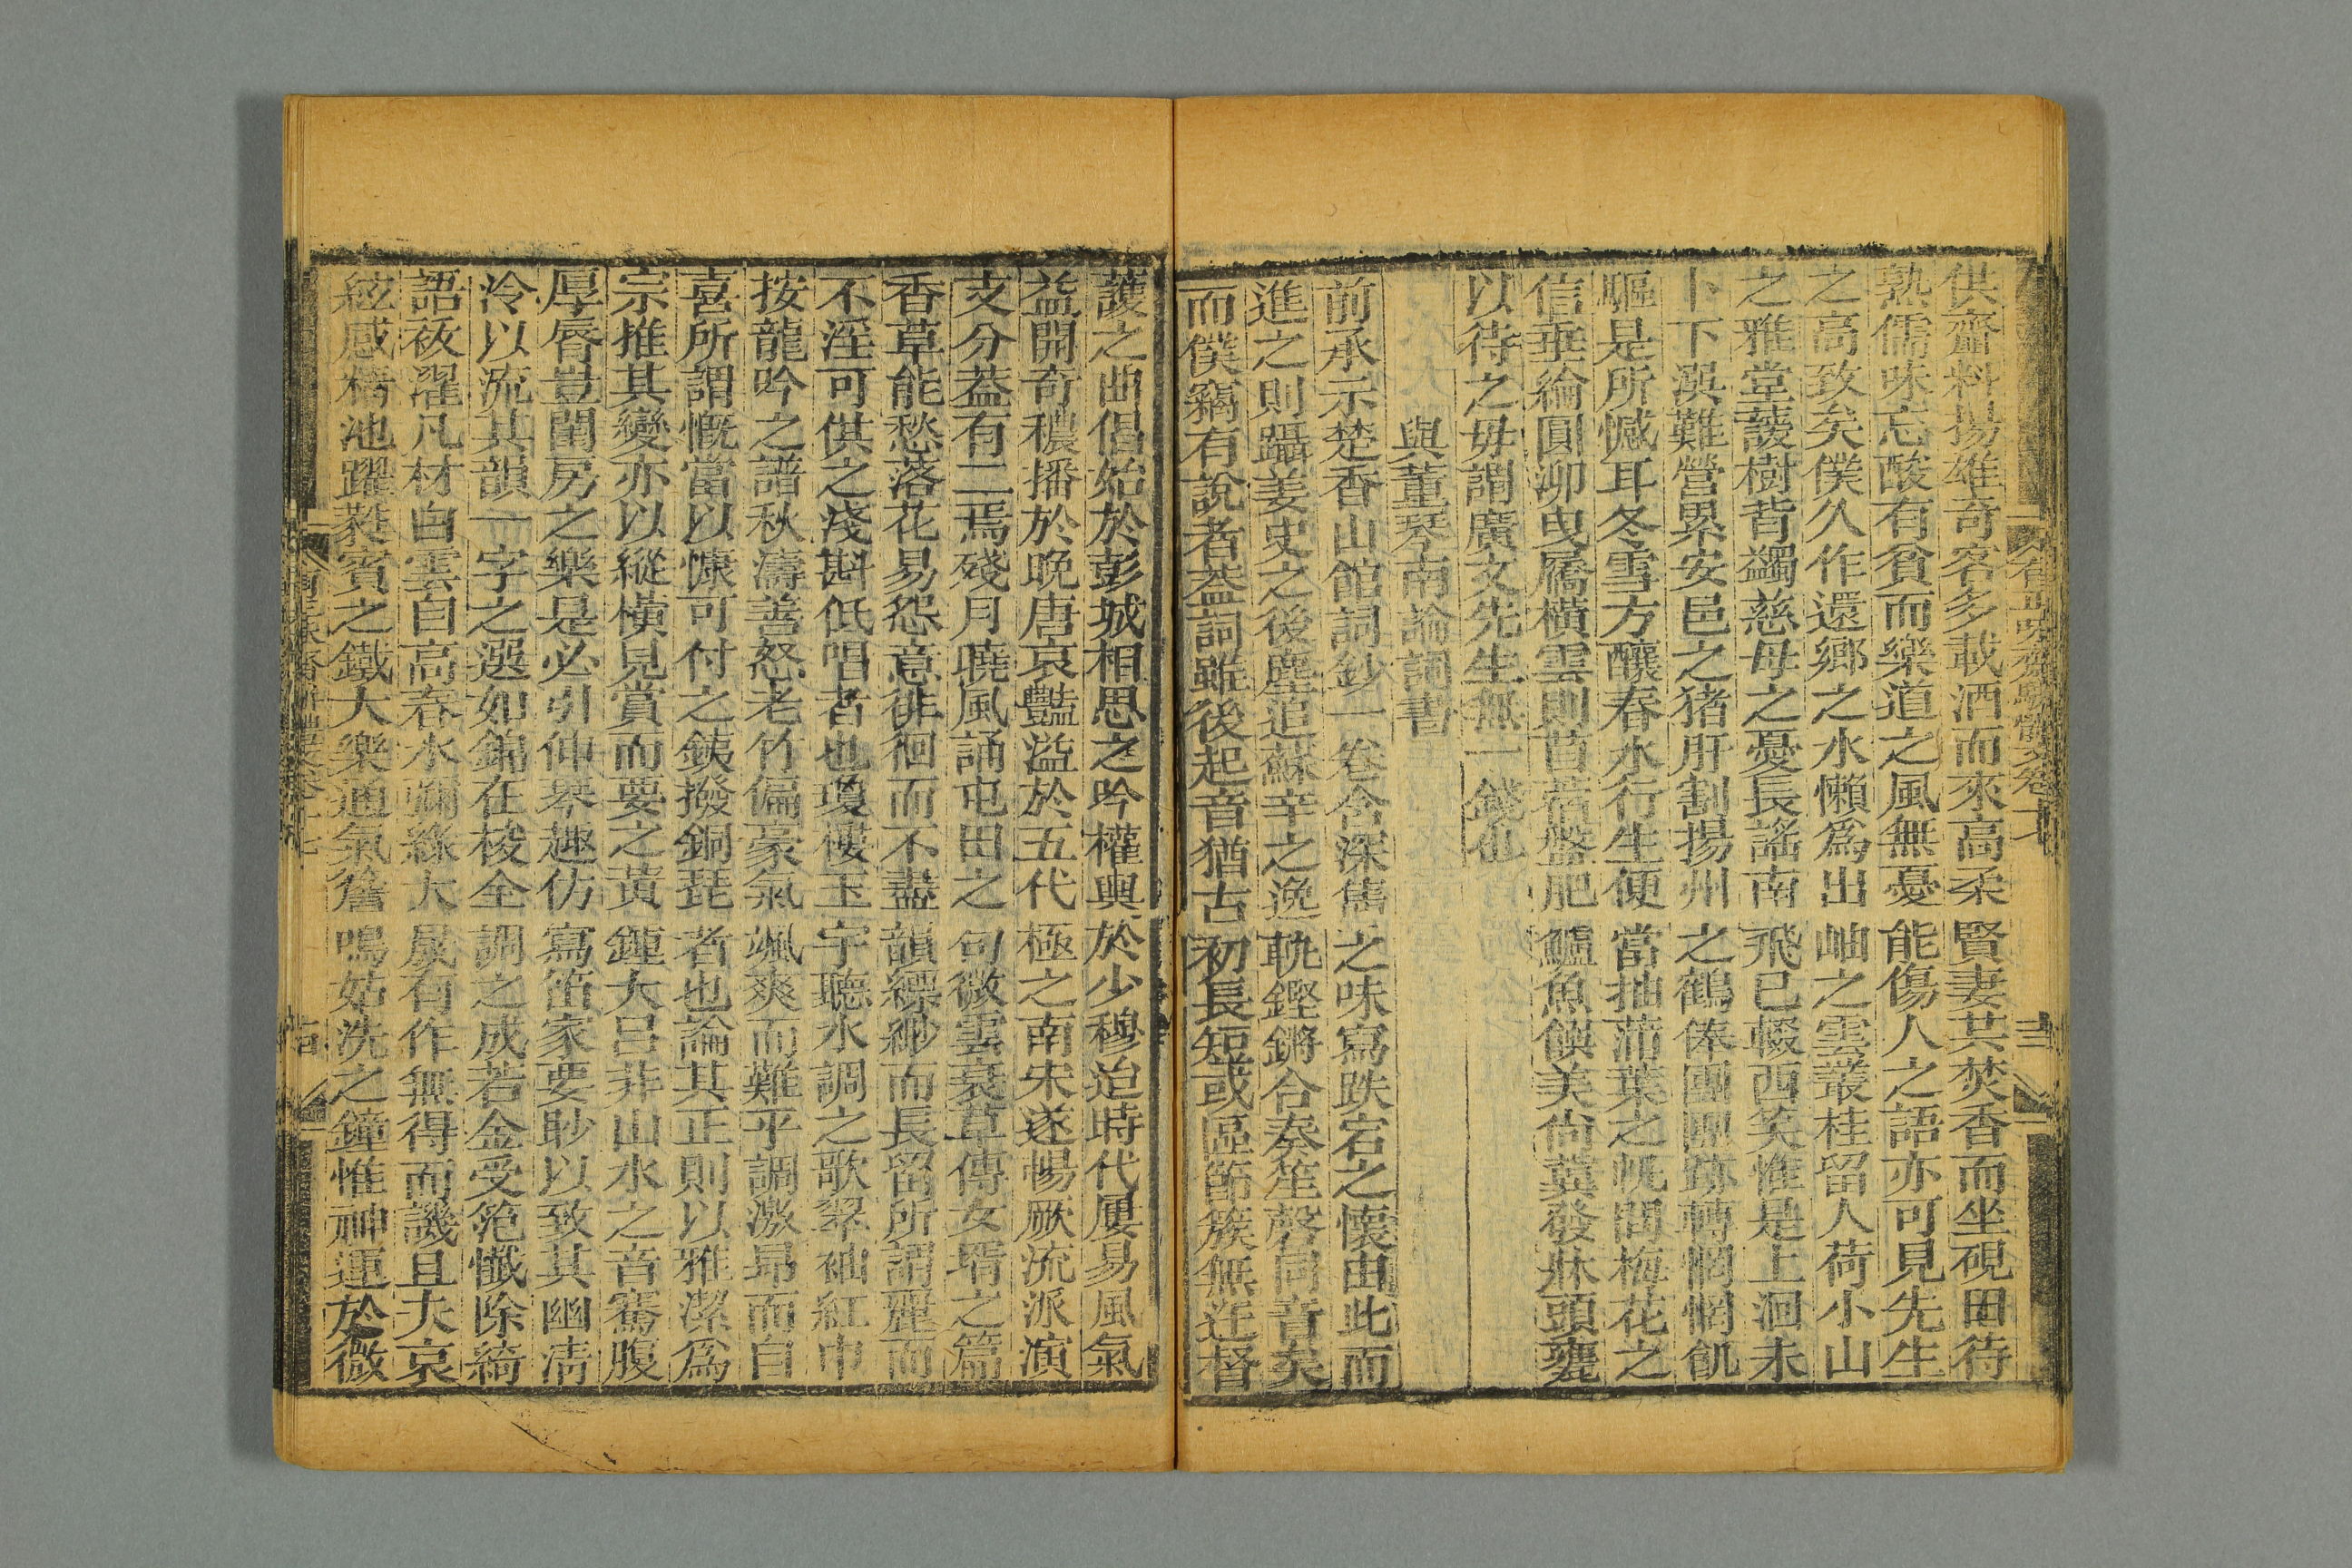 供齋料揚雄奇客多載酒而來高柔賢妻共焚香而坐硯田待
熟儒味忘酸有貧而樂道之風無憂能傷人之語亦可見先生
之高致矣僕久作還鄉之水懶爲出岫之雲叢桂留人荷小山
之雅堂護樹背蠲慈母之憂長謠南飛已輟西笑惟是上洄未
卜下潠難營累安邑之猪肝割揚州之鶴俸團團跡轉惘惘飢
驅是所憾耳冬雪方釀春水行生便當抽蒲葉之帆問梅花之
信垂綸圓泖曳屩橫雲則苜蓿盤肥鱸魚饌美尚冀發牀頭甕
以待之毋謂廣文先生無一錢也
與董琴南論詞書
前承示楚香山館詞鈔一卷含深雋之味寫跌宕之懷由此而
進之則躡姜史之後塵追蘇辛之逸軌鏗鏘合奏笙磬同音矣
而僕竊有說者葢詞雖後起音猶古初長短或區節簇無迕督
護之曲倡始於彭城相思之吟權輿於少穆迨時代屢易風氣
益開奇穠播於晚唐哀豔溢於五代極之南宋遂暢厥流派演
支分葢有二焉殘月曉風誦屯田之句微雲衰草傳女壻之篇
香草能愁落花易怨意徘徊而不盡韻縹緲而長留所謂麗而
不淫可供之淺斟低唱者也瓊樓玉宇聽水調之歌翠袖紅巾
按龍吟之譜秋濤善怒老竹偏豪氣颯爽而難乎調激昻而自
喜所謂慨當以慷可付之鐵撥銅琵者也論其正則以雅潔爲
宗推其變亦以縱橫見賞而要之黃鍾大呂非山水之音騫腹
厚脣豈閨房之樂是必引伸琴趣仿寫笛家要眇以致其幽淸
泠以流其韻一字之選如錦在梭全調之成若金受笵懺除綺
語祓濯凡材白雲自高春水彌綠大晟有作無得而譏且夫哀
絃感楿池躍蕤賓之鐵大樂通氣簷鳴姑洗之鐘惟神運於微